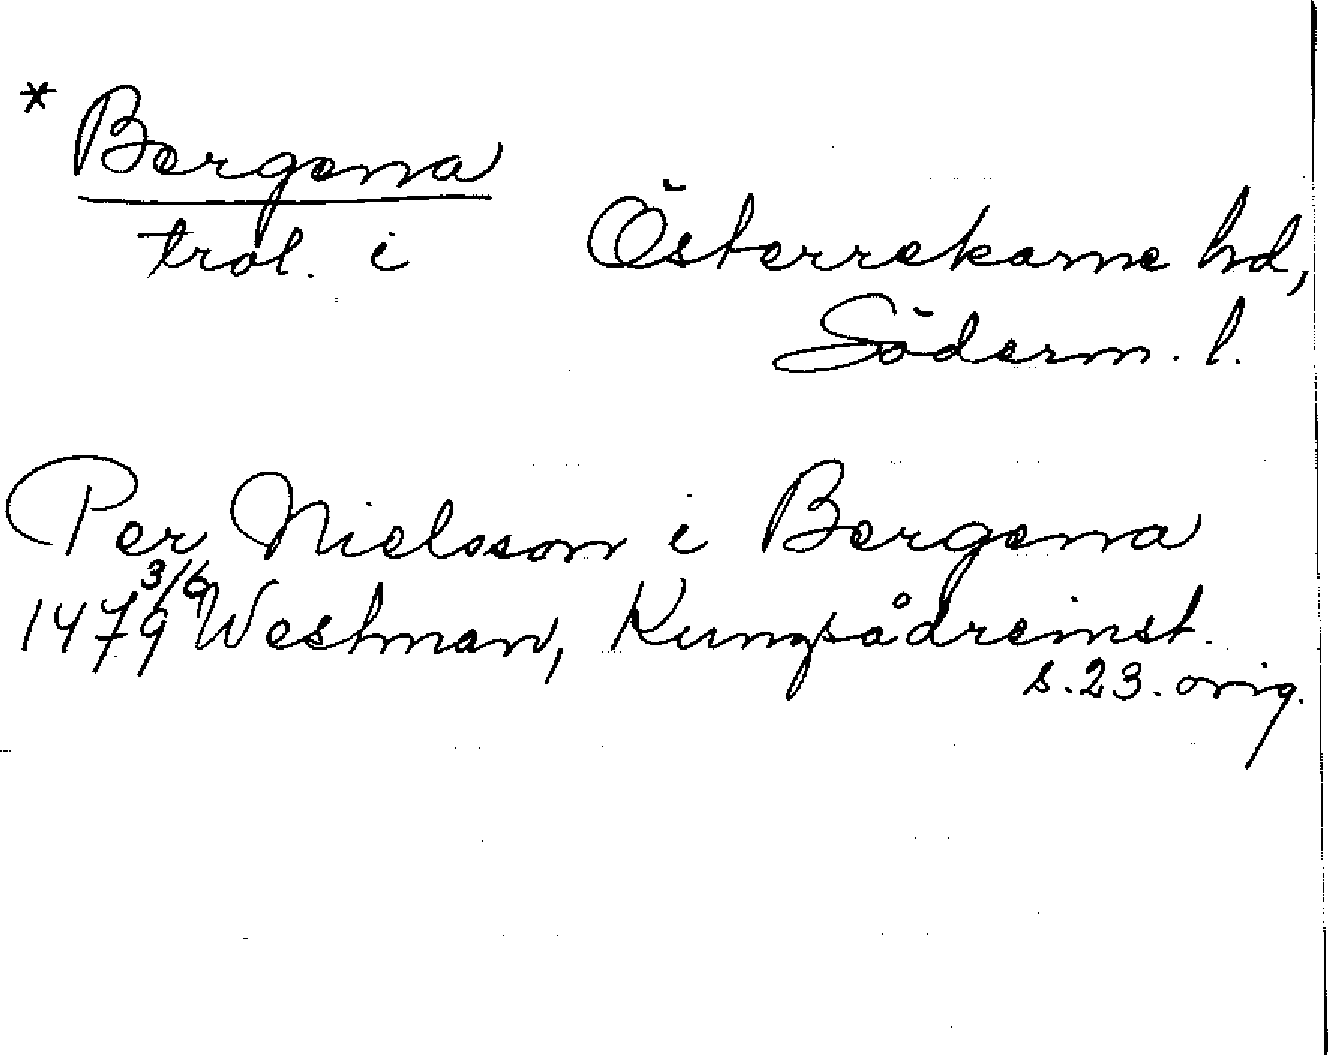 * Bergena
trol. i Österrekarne hd,
Söderm. l.
Per Nielsson i Bergena
1479 3/6 Westman, Kungsådreinst.
s. 23. orig.